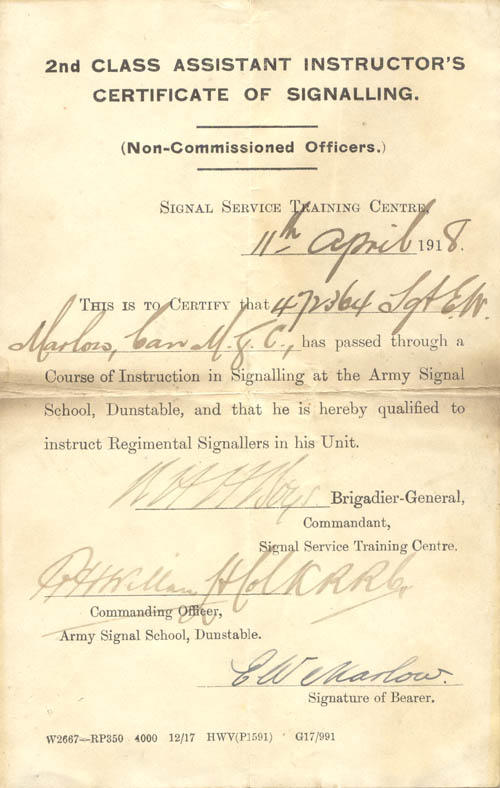 2nd CLASS ASSISTANT INSTRUCTOR'S
CERTIFICATE OF SIGNALLING.
(Non-Commissioned Officers.)
SIGNAL SERVICE TRAINING CENTRE,
11th April 1918.
THIS IS TO CERTIFY that 472364 Sgt E.W.
Marlow, Can M.G.C., has passed through a
Course of Instruction in Signalling at the Army Signal
School, Dunstable, and that he is hereby qualified to
instruct Regimental Signallers in his Unit.
Brigadier-General,
Commandant,
Signal Service Training Centre.
Col K.R.R.C.
Commanding Officer,
Army Signal School, Dunstable.
E W Marlow.
Signature of Bearer.
W2667—RP350 4000 12/17 HWV(P1591) G17/991